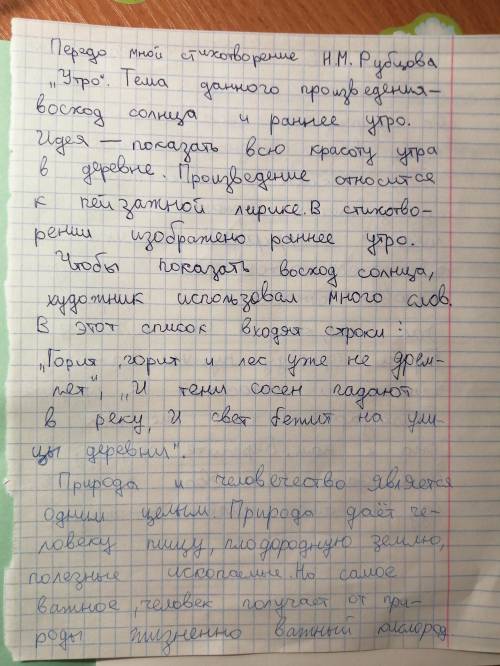 Передо мной стихотворение Н.М. Рубцова
„Утро". Тема данного произведения–
восход солнца и раннее утро.
Идея — показать всю красоту утра
в деревне. Произведение относится
к пейзажной лирике. В стихотво-
рении изображено раннее утро.
Чтобы показать восход солнца,
художник использовал много слов.
В этот список входят строки:
„Горит, горит и лес уже не дрем-
лет", „И тени сосен падают
в реку, И свет бежит на ули-
цы деревни".
Природа и человечество является
одним целым. Природа даёт че-
ловеку пищу, плодородную землю,
полезные ископаемые. Но самое
важное, человек получает от при-
роды жизненно важный кислород